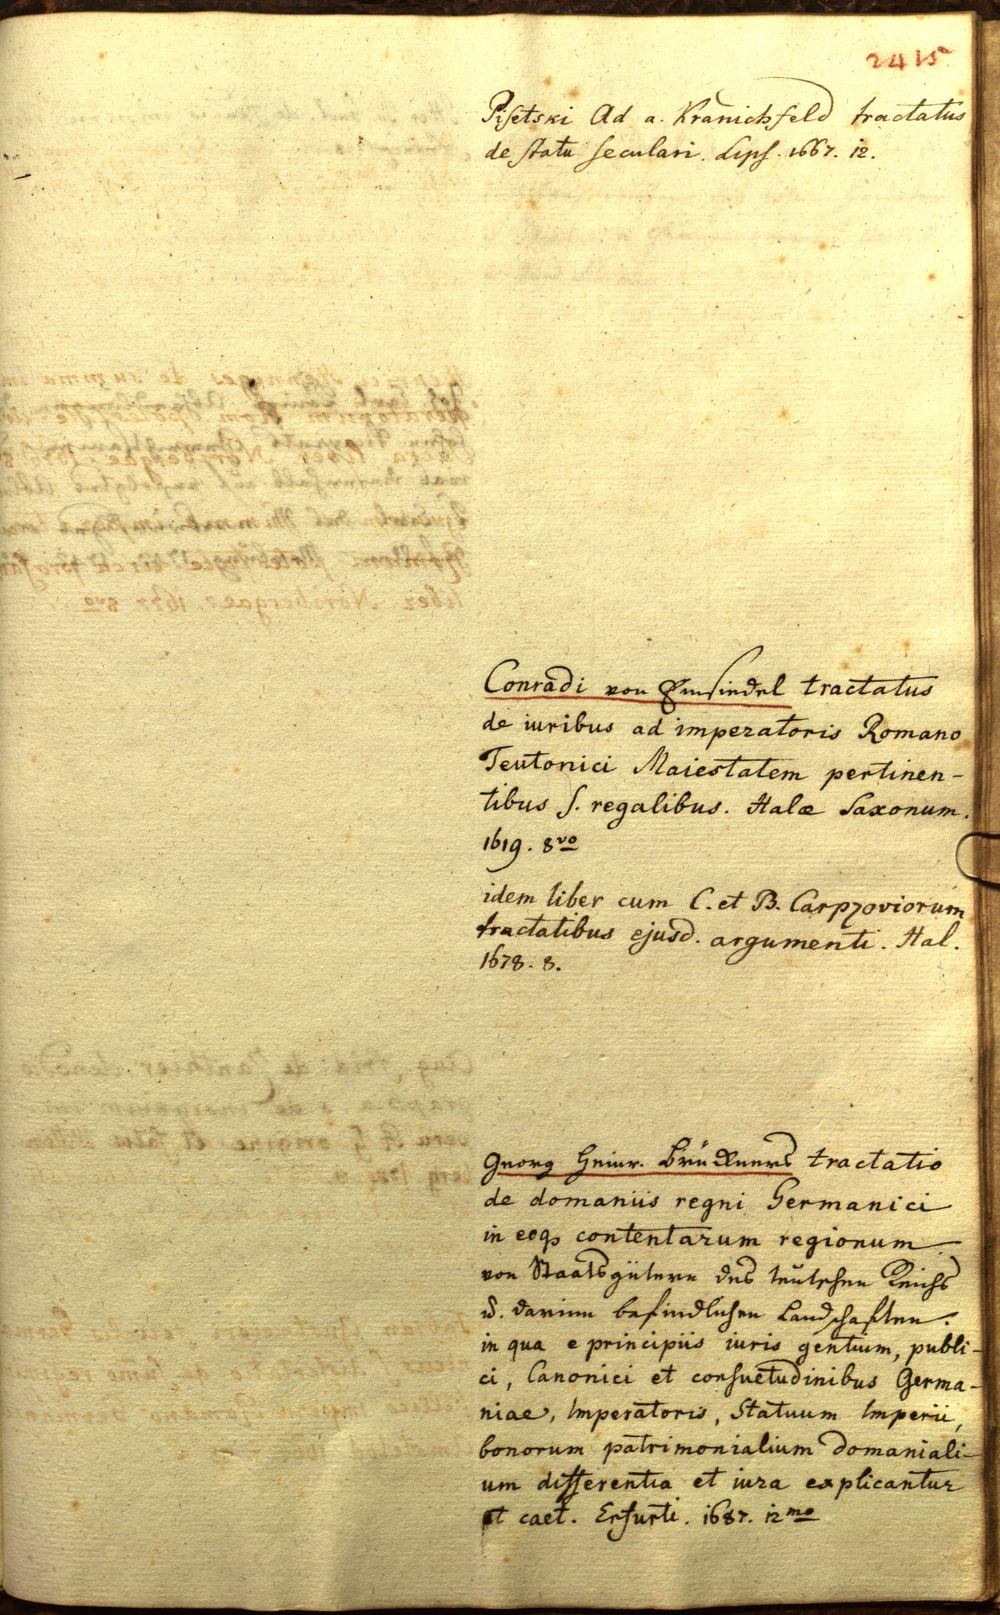 2415
Pisetski Ad a. Kranichfeld tractatus
de statu seculari. Lips. 1667. 12.
Conradi von Einsiedel tractatus
de iuribus ad imperatoris Romano
Teutonici Maiestatem pertinen-
tibus s. regalibus. Halæ Saxonum.
1619. 8vo
idem liber cum C. et B. Carpzoviorum
tractatibus ejusd. argumenti. Hal.
1678. 8.
Georg Heinr. Brückners tractatio
de domaniis regni Germanici
in eoq contentarum regionum
von Staatsgütern des teutschen Reichs
u. darinn befindlichen Landschaften.
in qua e principiis iuris gentium, publi-
ci, Canonici et consuetudinibus Germa-
niae, Imperatoris, Statuum Imperii,
bonorum patrimonialium domaniali-
um differentia et iura explicantur
et caet. Erfurti. 1687. 12mo